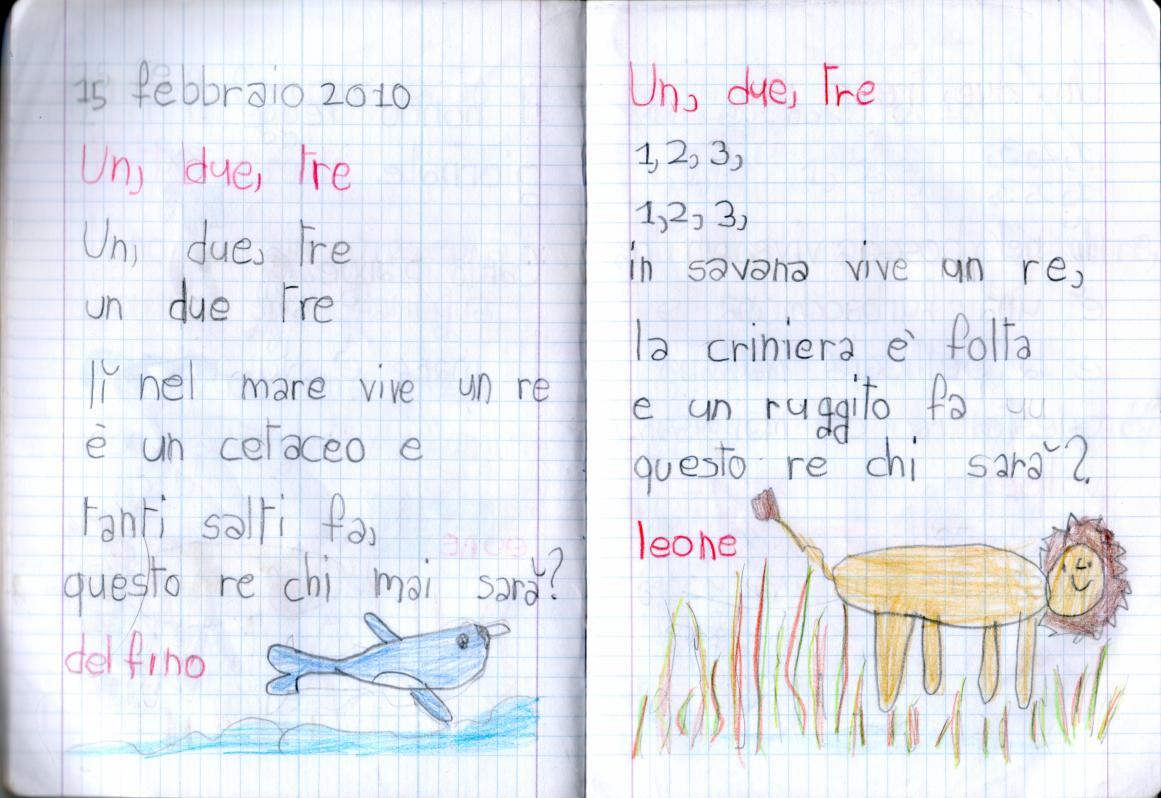 15 febbraio 2010
Un, due, tre
Un, due, tre
un due tre
lì nel mare vive un re
è un cetaceo e
tanti salti fa,
questo re chi mai sarà?
delfino
Un, due, tre
1, 2, 3,
1, 2, 3,
in savana vive un re,
la criniera è folta
e un ruggito fa
questo re chi sarà?
leone